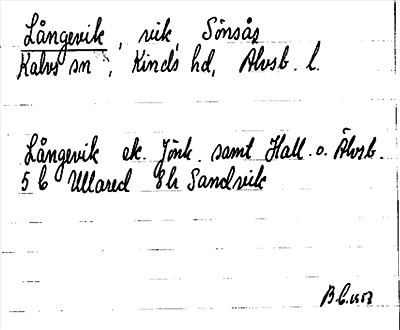 Långevik, vik, Sönsås
Kalvs sn, Kinds hd, Älvsb. l.
Långevik ek. Jönk. samt Hall. o. Älvsb.
5 C Ullared 8h Sandvik